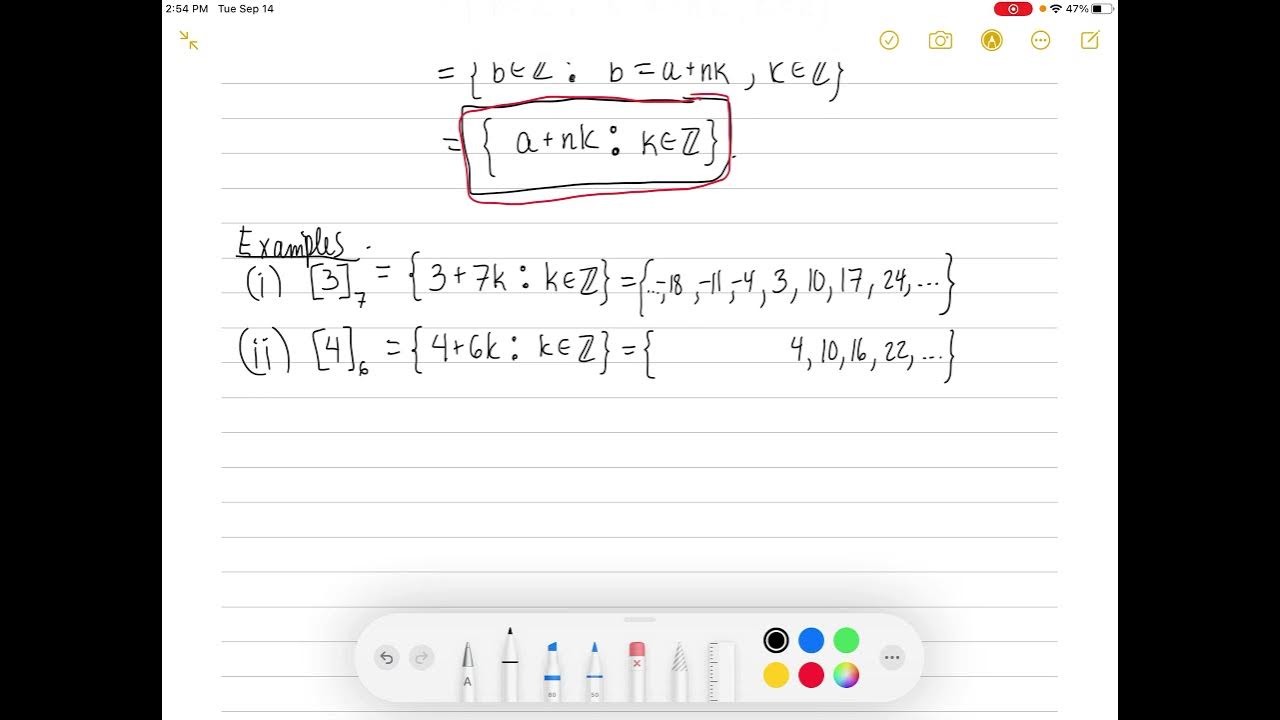 2:54 PM Tue Sep 14 47%
= { b∈ℤ : b = a+nk , k∈ℤ}
= { a+nk : k∈ℤ}.
Examples.
(i) [3]₇ = { 3+7k : k∈ℤ} = {...,-18, -11, -4, 3, 10, 17, 24, ...}
(ii) [4]₆ = { 4+6k : k∈ℤ} = { 4, 10, 16, 22, ...}
A 80 50